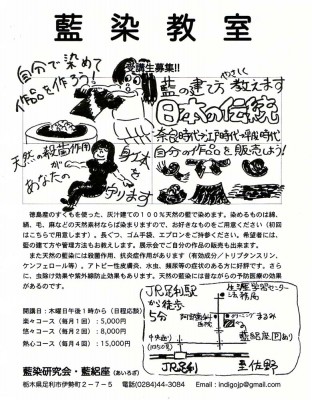 藍染教室
受講生募集!!
自分で染めて
作品を作ろう!
やさしく
藍の建て方教えます
日本の伝統
奈良時代〜江戸時代〜平成時代
自分の作品を販売しよう!
天然の殺菌作用
が
あなたの
身体を
守ります
徳島産のすくもを使った、灰汁建ての100%天然の藍で染めます。染めるものは綿、
絹、毛、麻などの天然素材ならば染まりますので、お好きなものをご用意ください（初回
はこちらで用意します）。長ぐつ、ゴム手袋、エプロンをご持参ください。希望者には、
藍の建て方や管理方法もお教えします。展示会でご自分の作品の販売も出来ます。
また天然の藍には殺菌作用、抗炎症作用があります（有効成分／トリプタンスリン、
ケンフェロール等）。アトピー性皮膚炎、水虫、頻尿等の症状のある方に好評です。さら
に、虫除け効果や紫外線防止効果もあります。天然の藍染には昔ながらの予防医療の効果
があるのです。
開講日：木曜日午後1時から（日程応談）
楽々コース（毎月1回）：5,000円
悠々コース（毎月2回）：8,000円
熱心コース（毎月4回）：15,000円
JR足利駅
から徒歩
5分
生涯学習センター
法務局
医院
クリーニング
まるみ
藍絽座
JR足利
至佐野
藍染研究会・藍絽座（あいろざ）
栃木県足利市伊勢町2－7－5　電話(0284)44-3084　Email : indigojp@gmail.com